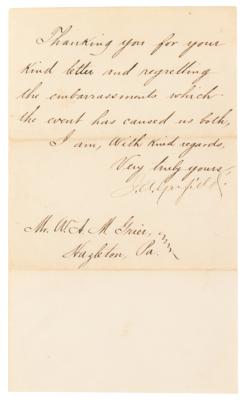 Thanking you for your
kind letter and regretting
the embarrassments which
the event has caused us both,
I am, With kind regards,
Very truly yours,
J. A. Garfield.
Mr. W. A. M. Grier,
Hazleton, Pa.